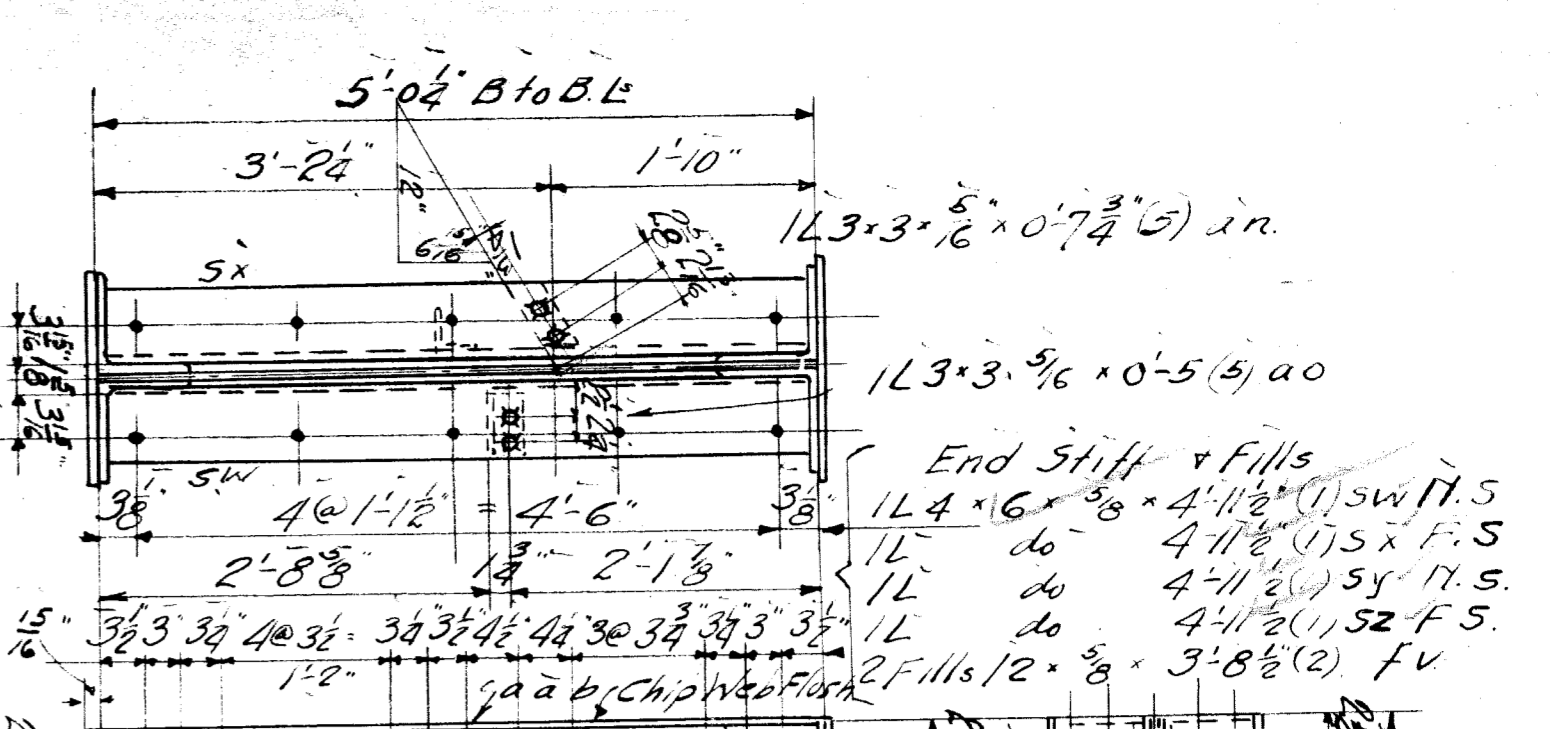 5'-0 1/4" B to B. Ls
3'-2 1/4" 1'-10"
12"
6 5/16
2 5/8" 2 13/16"
1L 3 x 3 x 5/16" x 0'-7 3/4" (5) an.
SX
3 15/16" 1 5/8 3 15/16"
1L 3 x 3 x 5/16 x 0'-5 (5) ao
SW
3 1/8" 4 @ 1'-1 1/2" = 4'-6" 3 1/8"
2'-8 5/8" 1 3/4" 2'-1 7/8"
15/16" 3 1/2" 3" 3 1/4" 4@3 1/2= 3 1/4" 3 1/2" 4 1/2" 4 1/4" 3@3 3/4" 3 1/4" 3" 3 1/2"
1'-2"
Chip Web Flush
End Stiff & Fills
1L 4 x 6 x 5/8 x 4'-11 1/2" (1) SW N.S
1L do 4'-11 1/2" (1) SX F.S
1L do 4'-11 1/2 (1) SY N.S.
1L do 4'-11 1/2 (1) SZ F S.
2 Fills 12 x 5/8 x 3'-8 1/2" (2) fv